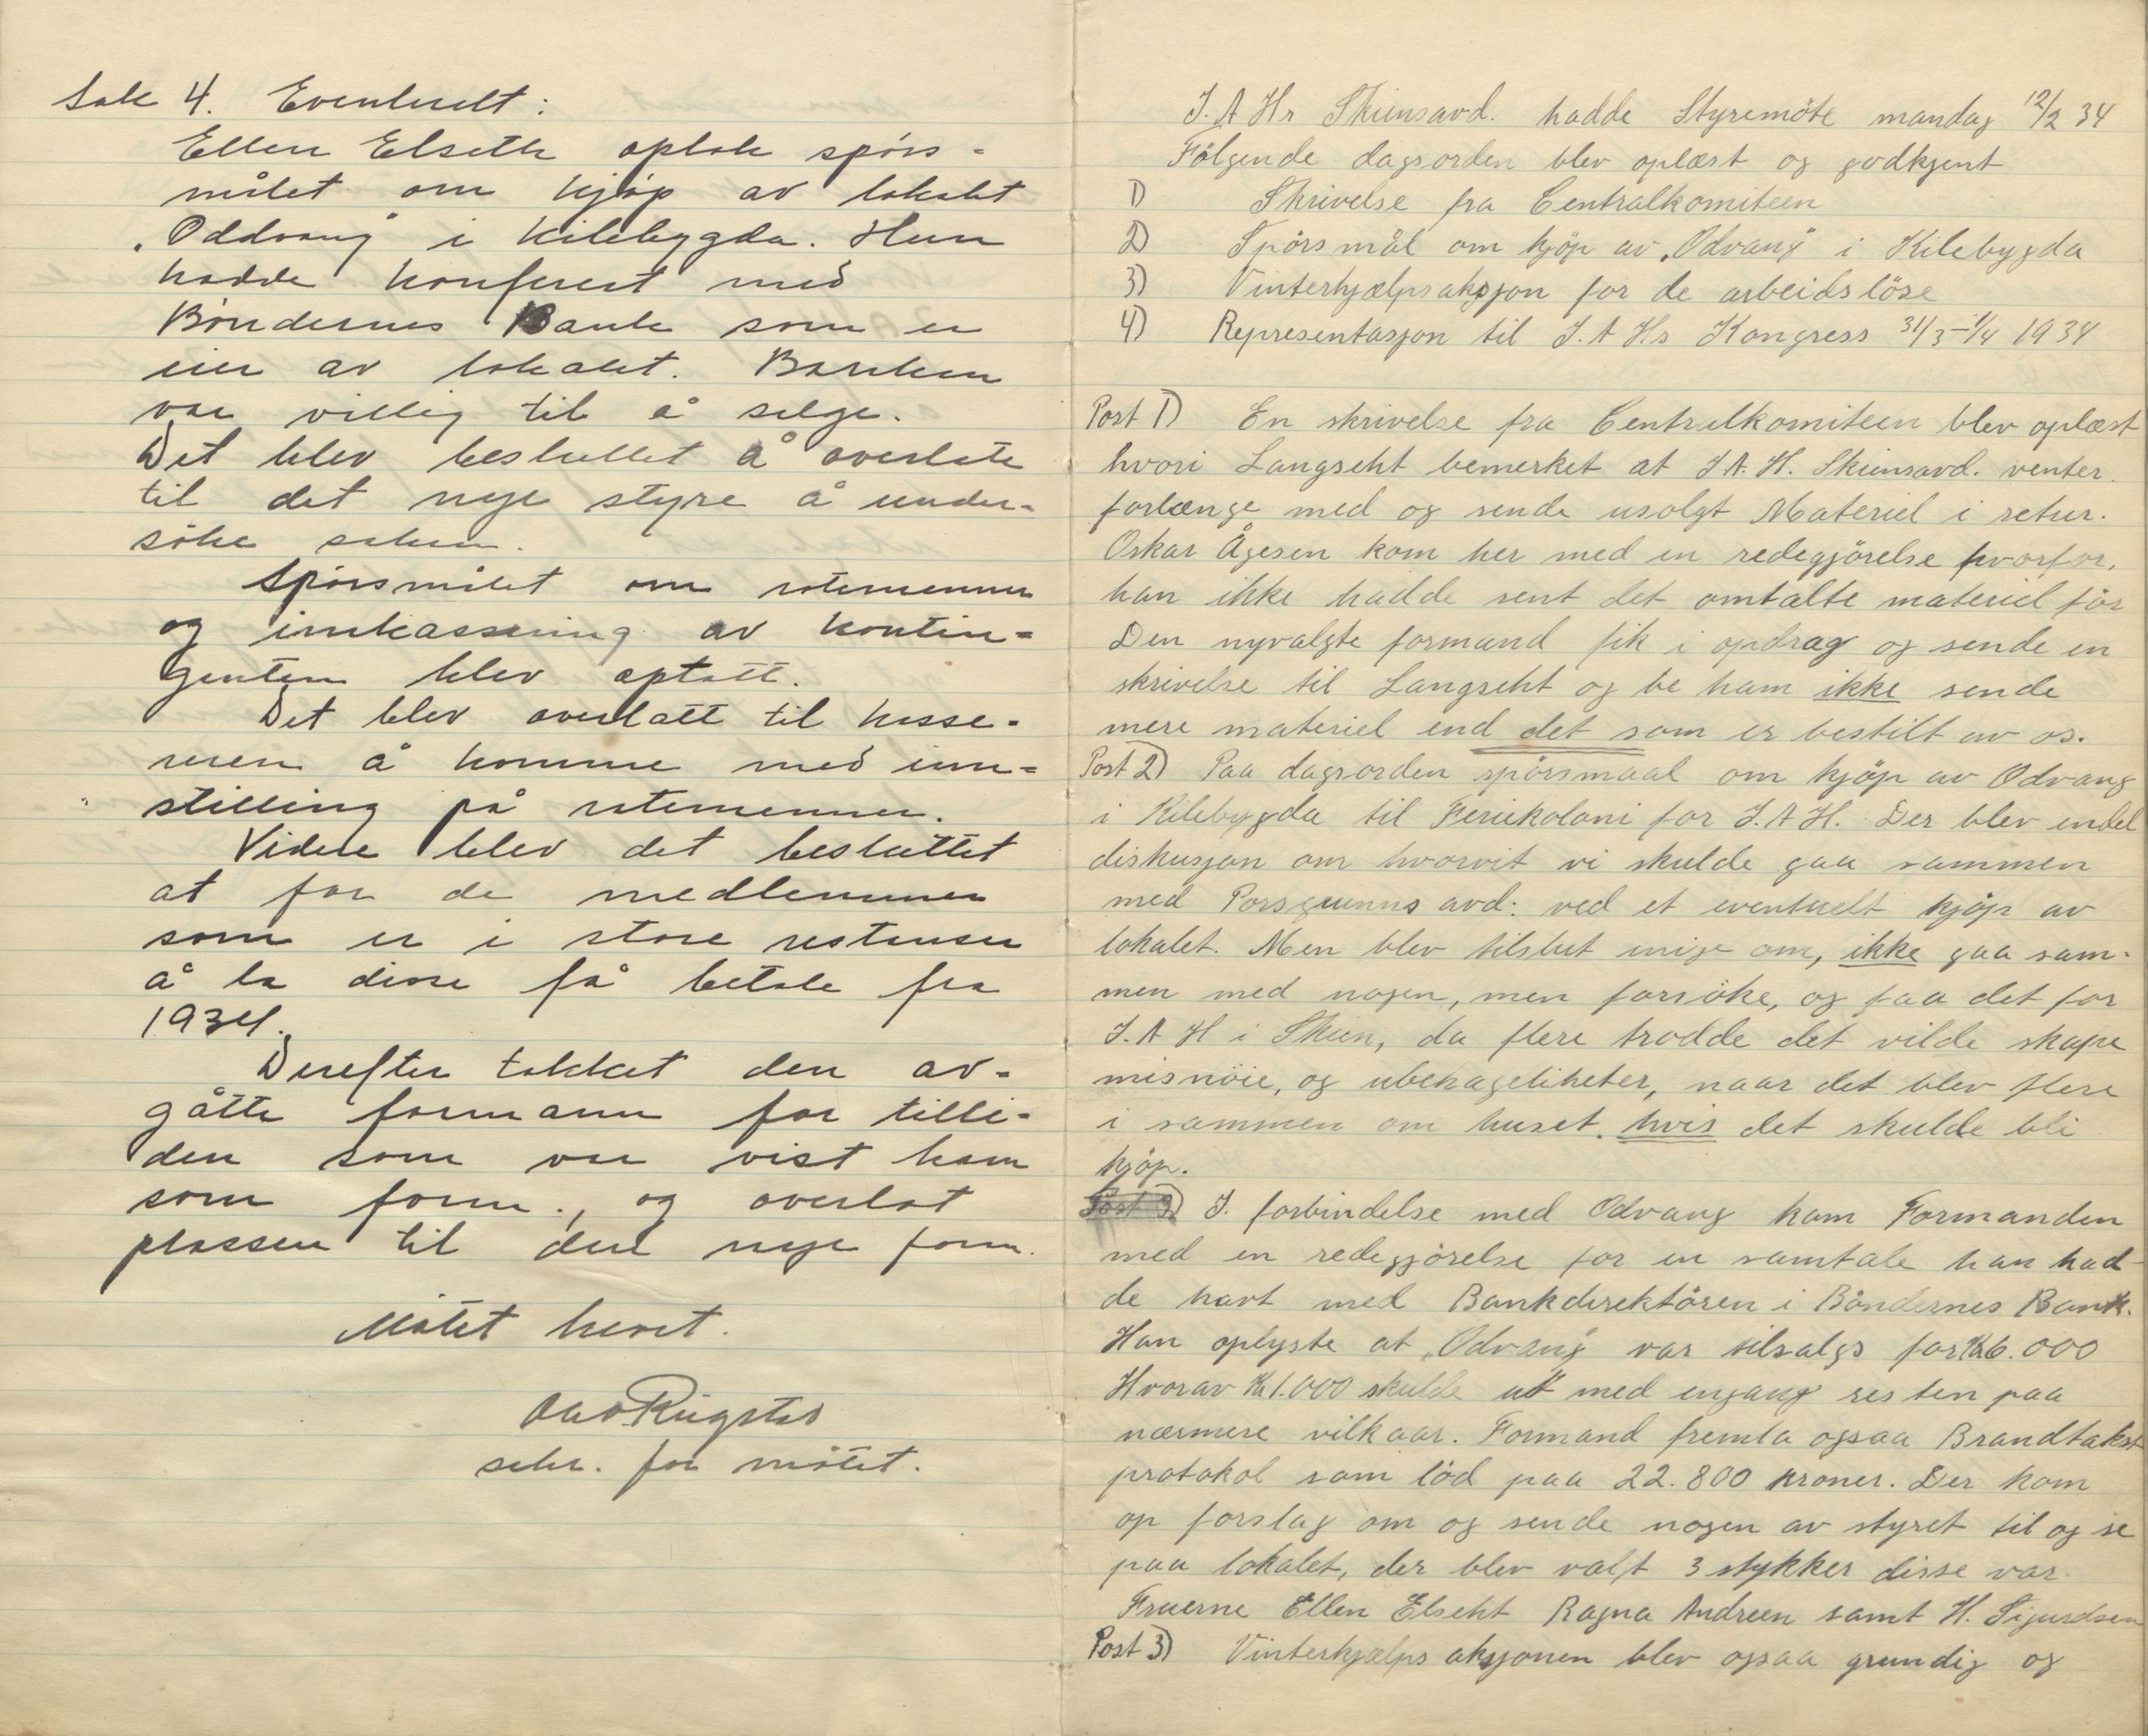 Sak 4. Eventuelt:
Ellen Elseth optok spörs-
målet om kjöp av lokalet
"Oddvang" i Kilebygda. Hun
hadde konferert med
Böndernes Bank som er
eier av lokalet. Banken
var villig til å selge.
Det blev besluttet å overlate
til det nye styre å under-
söke saken.
Spörsmålet om rotemenner
og innkassering av kontin-
genten blev optatt.
Det blev overlatt til kasse-
reren å komme med inn-
stilling på rotemenner.
Videre blev det besluttet
at for de medlemmer
som er i store restanser
å la disse få betale fra
1934.
Derefter takket den av-
gåtte formann for tilli-
den som var vist ham
som form., og overlot
plassen til den nye form.
Mötet hevet.
Olav Ringstad
sekr. for mötet.
I.A Hs Skiensavd. hadde Styremöte mandag 12/2 34
Fölgende dagsorden blev oplæst og godkjent
1) Skrivelse fra Centralkomiteen
2) Spörsmål om kjöp av "Odvang" i Kilebygda
3) Vinterhjælpsaksjon for de arbeidslöse
4) Representasjon til I.A Hs Kongress 31/3-1/4 1934
Post 1) En skrivelse fra Centralkomiteen blev oplæst
hvori Langseht bemerket at I A. H. Skiensavd. venter
forlænge med og sende usolgt Materiel i retur.
Oskar Ågesen kom her med en redegjörelse hvorfor,
han ikke hadde sent det omtalte materiel för
Den nyvalgte formand fik i opdrag og sende en
skrivelse til Langseht og be ham ikke sende
mere materiel end det som er bestilt av os.
Post 2) Paa dagsorden spörsmaal om kjöp av Odvang
i Kilebygda til Feriekoloni for I.A H. Der blev endel
diskusjon om hvorvit vi skulde gaa sammen
med Porsgrunns avd: ved et eventuelt kjöp av
lokalet. Men blev tilslut enige om, ikke gaa sam-
men med nogen, men forsöke, og faa det for
I.A H i Skien, da flere trodde det vilde skape
misnöie, og ubehageliheter, naar det blev flere
i sammen om huset, hvis det skulde bli
kjöp.
Post 3) I. forbindelse med Odvang kom Formanden
med en redegjörelse for en samtale han had-
de havt med Bankdirektören i Böndernes Bank.
Han oplyste at "Odvang" var tilsalgs for Kr 6.000
Hvorav Kr 1.000 skulde ut med engang resten paa
nærmere vilkaar. Formand fremla ogsaa Brandtakst
protokol som löd paa 22.800 kroner. Der kom
op forslag om og sende nogen av styret til og se
paa lokalet, der blev valgt 3 stykker disse var
Fruerne Ellen Elseht Ragna Andreen samt H. Sigurdsen
Post 3) Vinterhjælps aksjonen blev ogsaa grundig og